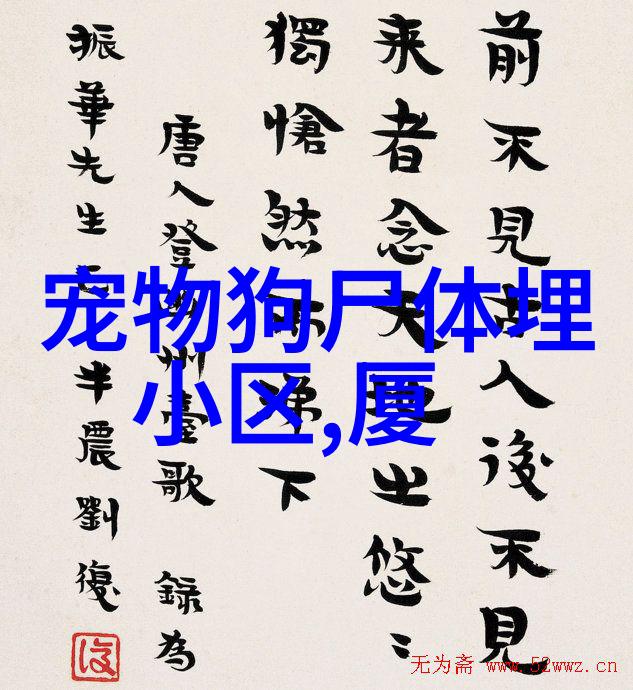 前不見古人後不見
来者念天地之悠〻
獨愴然而涕下
唐人登幽州臺歌 錄為
振華先生 半農劉復
復
宠物狗尸体埋
小区,厦
无为斋 www.52wwz.cn